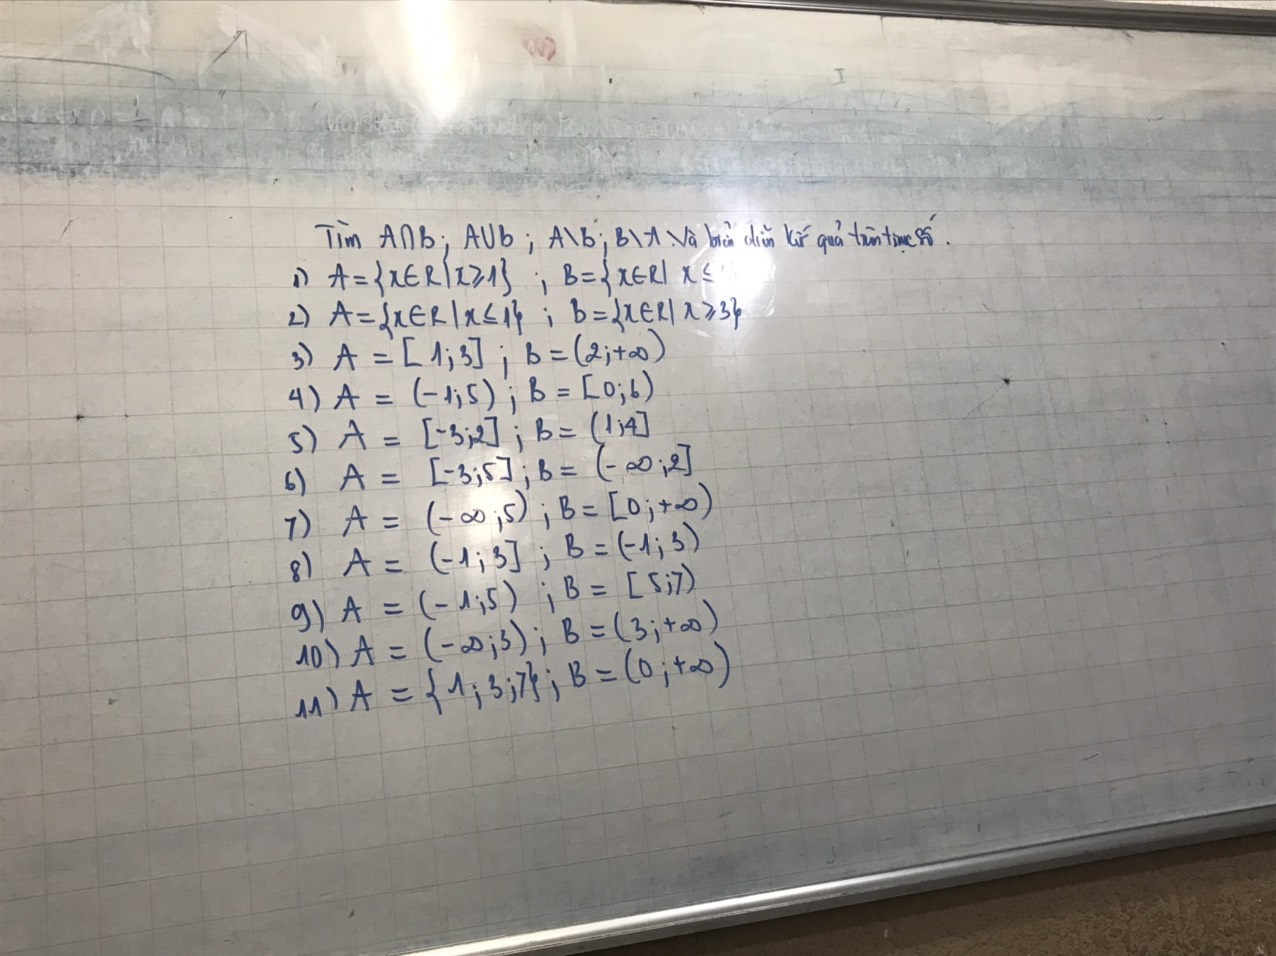 Tìm A∩B; A∪B; A\B; B\A và biểu diễn kết quả trên trục số.
1) A={x∈R|x≥1} ; B={x∈R| x ≤
2) A={x∈R|x≤1} ; B={x∈R| x≥3}
3) A = [1;3] ; B=(2;+∞)
4) A = (-1;5) ; B = [0;6)
5) A = [-3;2] ; B= (1;4]
6) A = [-3;5] ; B= (-∞;2]
7) A = (-∞;5) ; B= [0;+∞)
8) A = (-1;3] ; B=(-1;3)
9) A = (-1;5) ; B= [5;7)
10) A = (-∞;3) ; B=(3;+∞)
11) A = {1;3;7} ; B = (0;+∞)